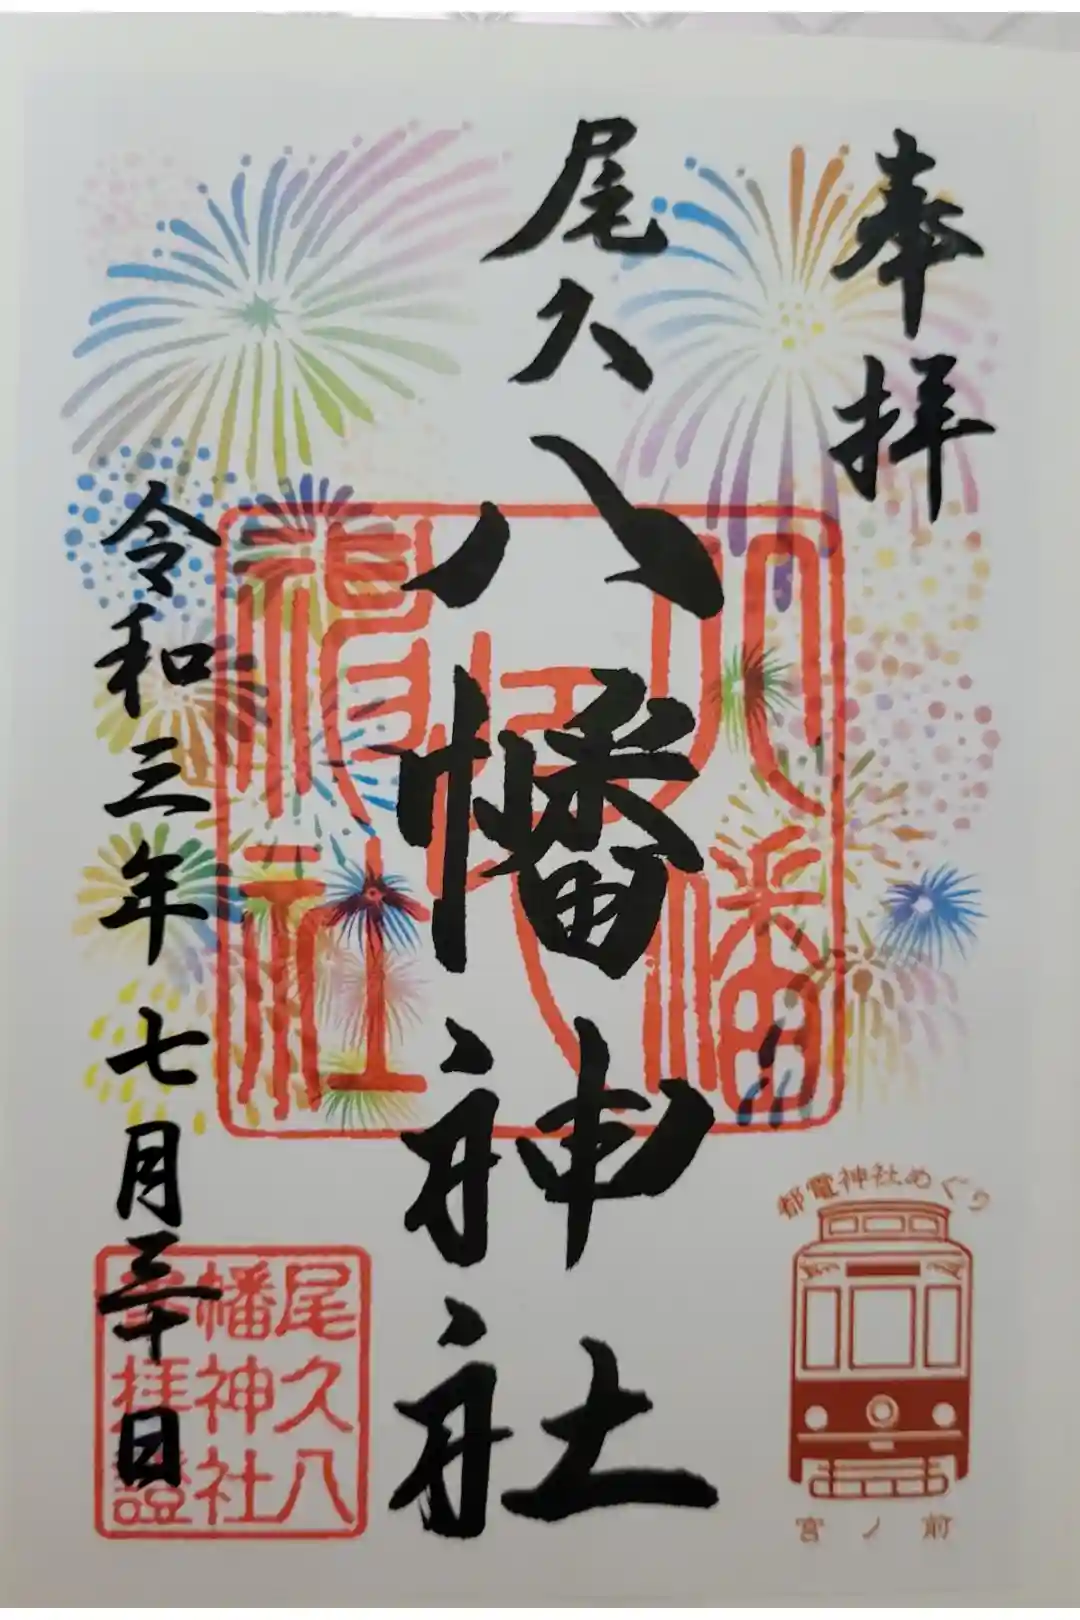 奉拝
尾久
八幡神社
令和三年七月三十日
八幡
神社
尾久八
幡神社
参拝證
都電神社めぐり
宮ノ前